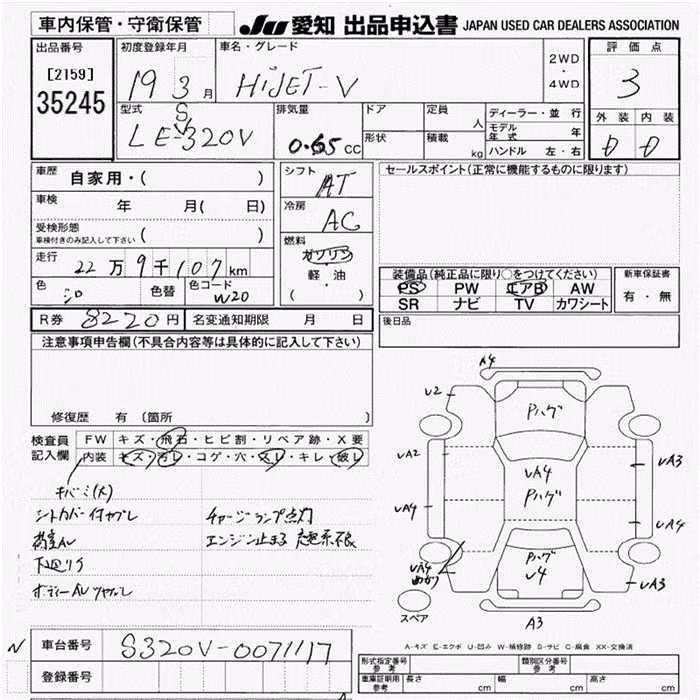 車内保管・守衛保管
JU 愛知 出品申込書 JAPAN USED CAR DEALERS ASSOCIATION
出品番号
[2159]
35245
初度登録年月
19 3月
車名・グレード
HiJET-V
2WD
・
4WD
評価点
3
外装 内装
D D
型式
LE-S320V
排気量
0.65 CC
ドア
定員
人
形状
積載
kg
ディーラー・並行
モデル年式 年
ハンドル 左・右
車歴 自家用・( )
車検 年 月( 日)
受検形態
車検付きのみ記入して下さい ( )
走行 22万9千107km
色 シロ
色替
色コード W20
R券 8220円
名変通知期限 月 日
シフト AT
冷房 AC
燃料
ガソリン
軽・油
( )
セールスポイント(正常に機能するものに限ります)
装備品(純正品に限り○をつけてください)
PS PW エアB AW
SR ナビ TV カワシート
新車保証書
有・無
後日品
注意事項申告欄(不具合内容等は具体的に記入して下さい)
修復歴 有 (箇所
検査員
記入欄
FW キズ・飛石・ヒビ割・リペア跡・X要
内装 キズ・汚レ・コゲ・穴・スレ・キレ・破レ
キバミ(大)
シートカバー付ヤブレ
荷室AU
下廻りサ
チャージランプ点灯
エンジン止まる
A4
U2
Pハゲ
UA2
UA3
UA4
Pハゲ
UA4
UA4
Pハゲ
U4
UA4
UA3
スペア
A3
A-キズ E-エクボ U-凹み W-補修跡 S-サビ C-腐食 XX-交換済
N
車台番号 S320V-0071117
登録番号
形式指定番号
参考
類別区分番号
参考
車庫証明用
参考
長さ cm
幅 cm
高さ cm